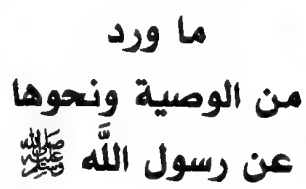 ما ورد
من الوصية ونحوها
عن رسول اللَّه ﷺ